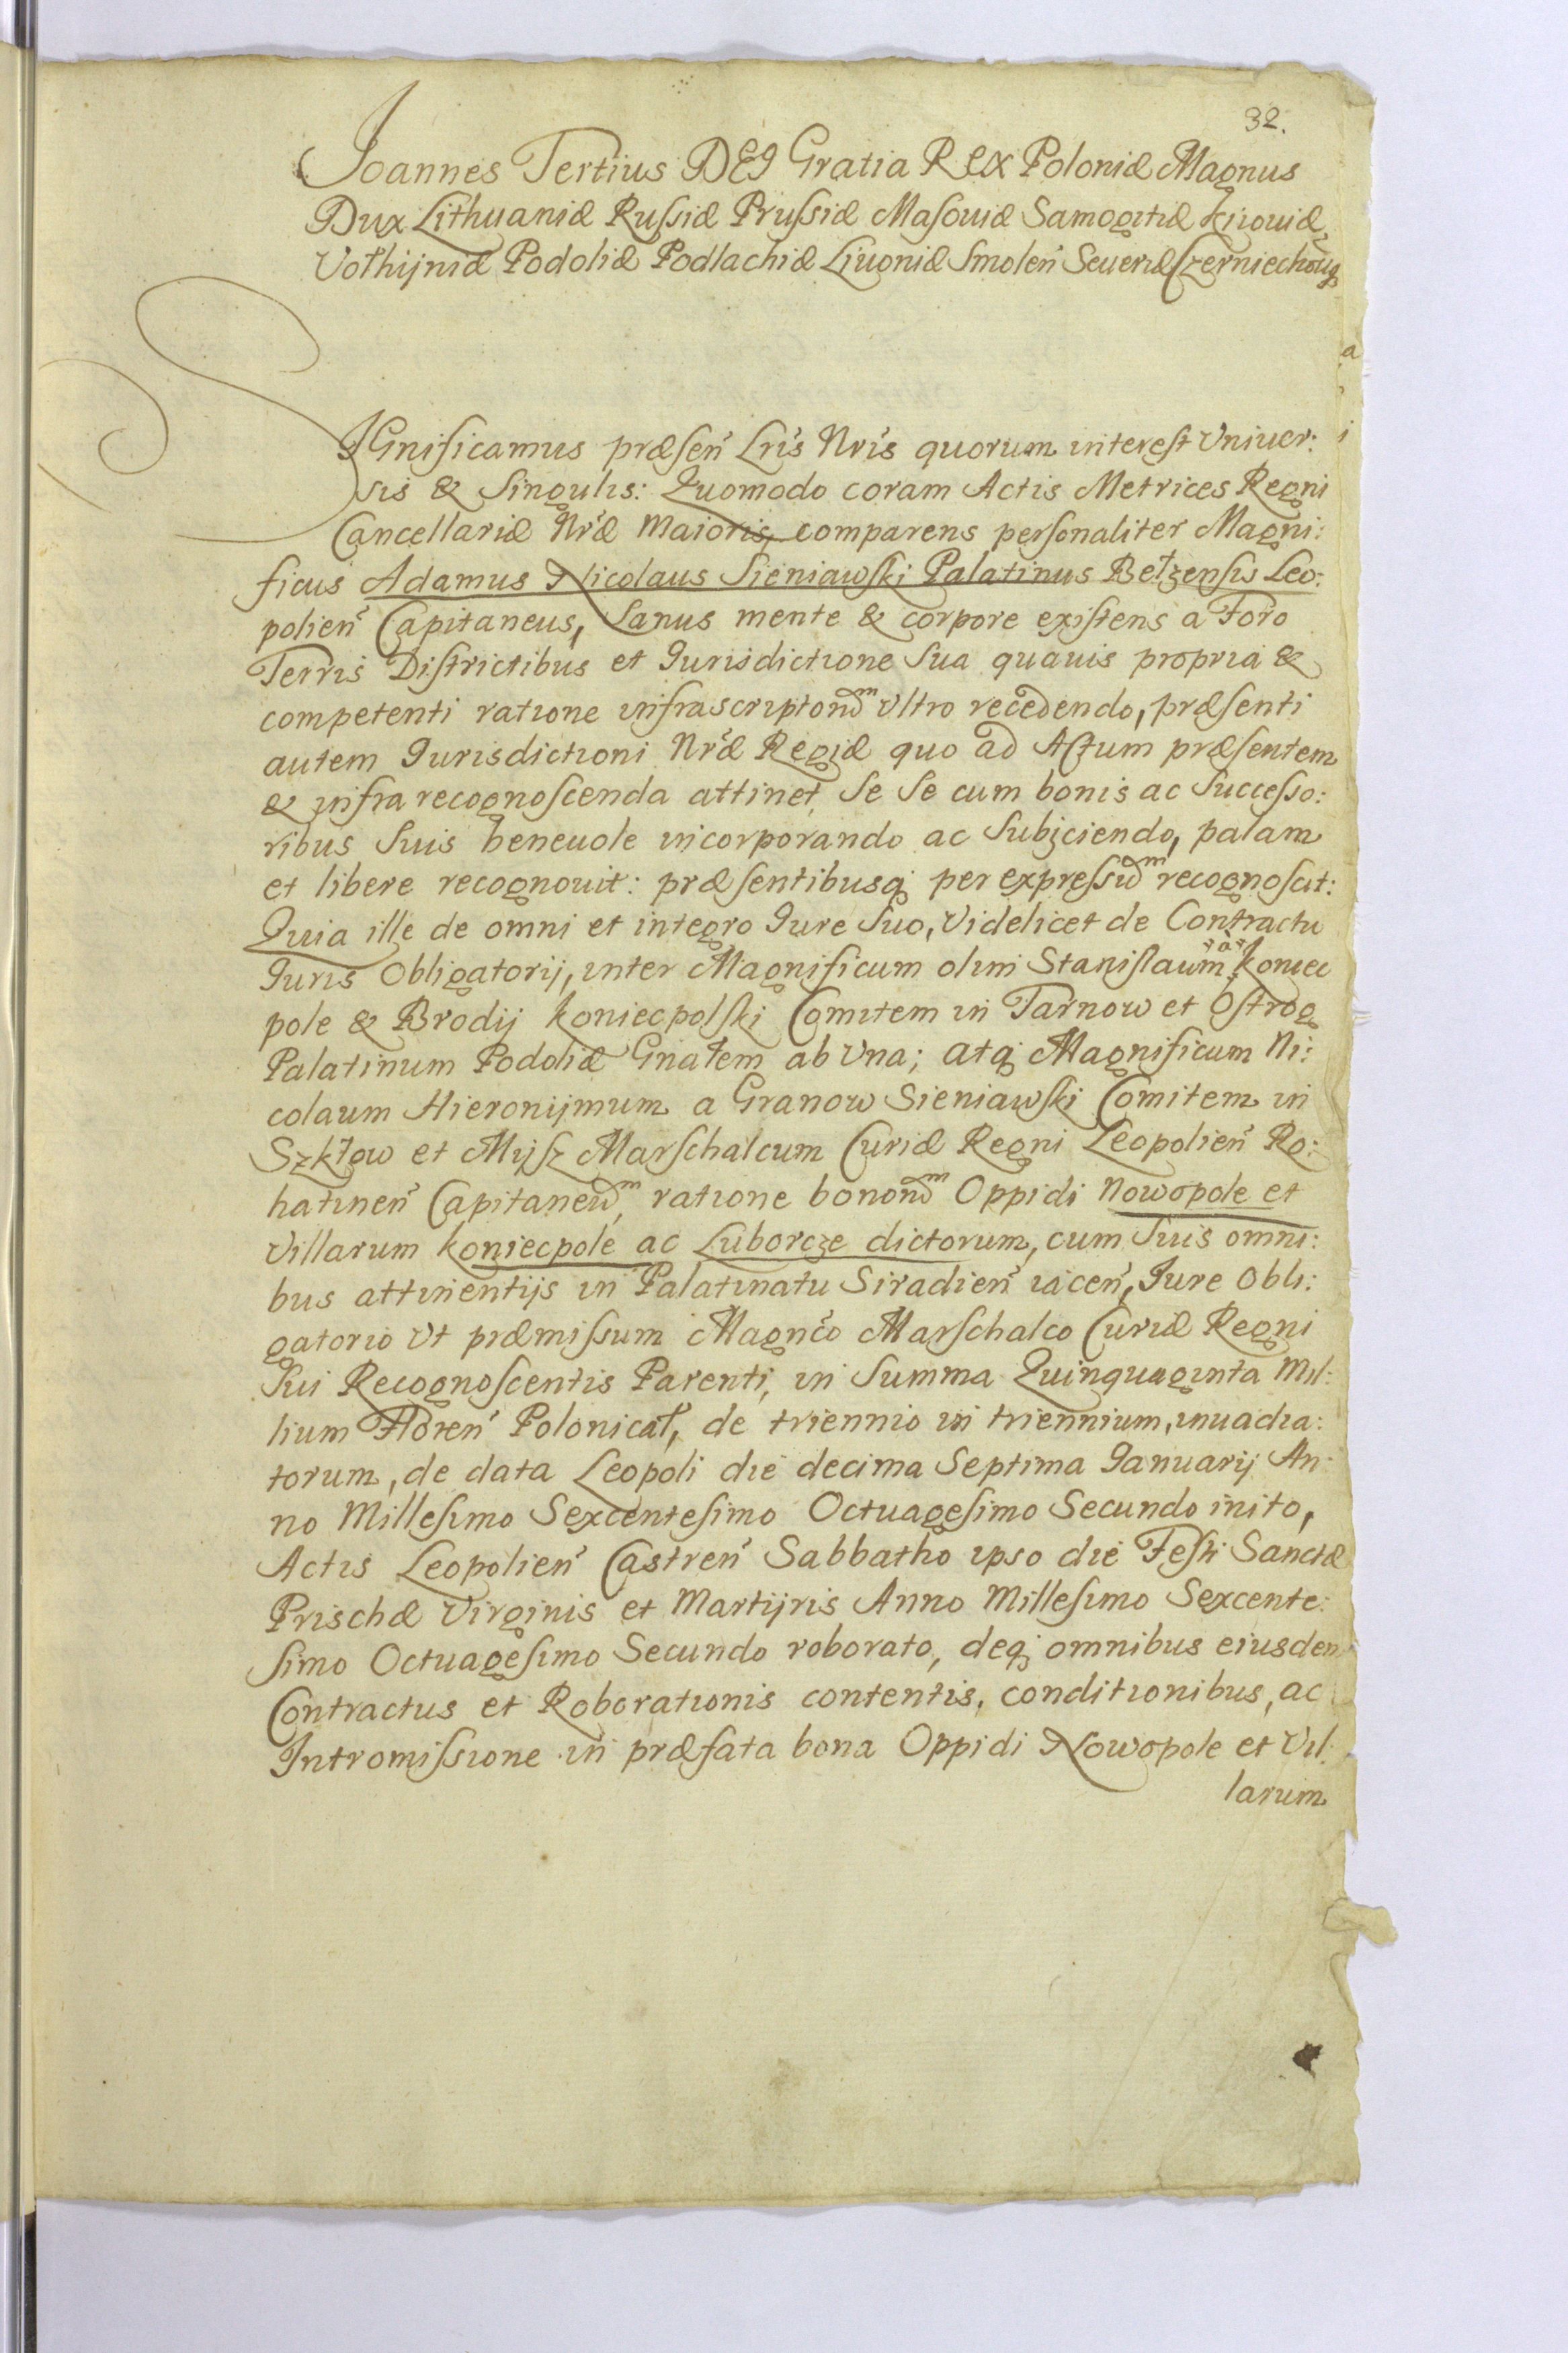 32.
Joannes Tertius DEI Gratia REX Poloniæ Magnus
Dux Lithuaniæ Russiæ Prussiæ Masouiæ Samogitiæ Kijouiæ
Vołhijniæ Podoliæ Podlachiæ Liuoniæ Smolen̄ Seueriæ Czerniechouiæq
SIGnificamus præsen̄ Lrīs Nrīs quorum interest Vniuer:
sis & Singulis: Quomodo coram Actis Metrices Regni
Cancellariæ Nrǣ Maioris, comparens personaliter Magni:
ficus Adamus Nicolaus Sieniawski Palatinus Bełzensis Leo:
polien̄ Capitaneus, Sanus mente & corpore existens a Foro
Terris Districtibus et Iurisdictione Sua quauis propria &
competenti ratione infrascriptorum Vltro recedendo, præsenti
autem Iurisdictioni Nrǣ Regiæ quo ad Actum præsentem
& infra recognoscenda attinet, Se Se cum bonis ac Successo:
ribus Suis beneuole incorporando ac Subijciendo, palam
et libere recognouit: præsentibusq; per expressum recognoscit:
Quia ille de omni et integro Iure Suo, Videlicet de Contractu
Iuris Obligatorij, inter Magnificum olim Stanislaum a Koniec
pole & Brodij Koniecpolski Comitem in Tarnow et Ostrog
Palatinum Podoliæ Gnałem ab Vna; atq; Magnificum Ni:
colaum Hieronijmum a Granow Sieniawski Comitem in
Szkłow et Mijsz Marschalcum Curiæ Regni Leopolien̄ Ro:
hatinen̄ Capitaneum, ratione bonorum Oppidi Nowopole et
Villarum Koniecpole ac Luborcze dictorum, cum Suis omni:
bus attinentijs in Palatinatu Siradien̄ iacen̄, Iure Obli:
gatorio Vt præmissum Magnc̄o Marschalco Curiæ Regni
Sui Recognoscentis Parenti, in Summa Quinquaginta Mil:
lium Floren̄ Polonicał, de triennio in triennium, inuadia:
torum, de data Leopoli die decima Septima Ianuarij An:
no Millesimo Sexcentesimo Octuagesimo Secundo inito,
Actis Leopolien̄ Castren̄ Sabbatho ipso die Festi Sanctæ
Prischæ Virginis et Martijris Anno Millesimo Sexcente:
simo Octuagesimo Secundo roborato, deq; omnibus eiusdem
Contractus et Roborationis contentis, conditionibus, ac
Intromissione in præfata bona Oppidi Nowopole et Vil:
larum